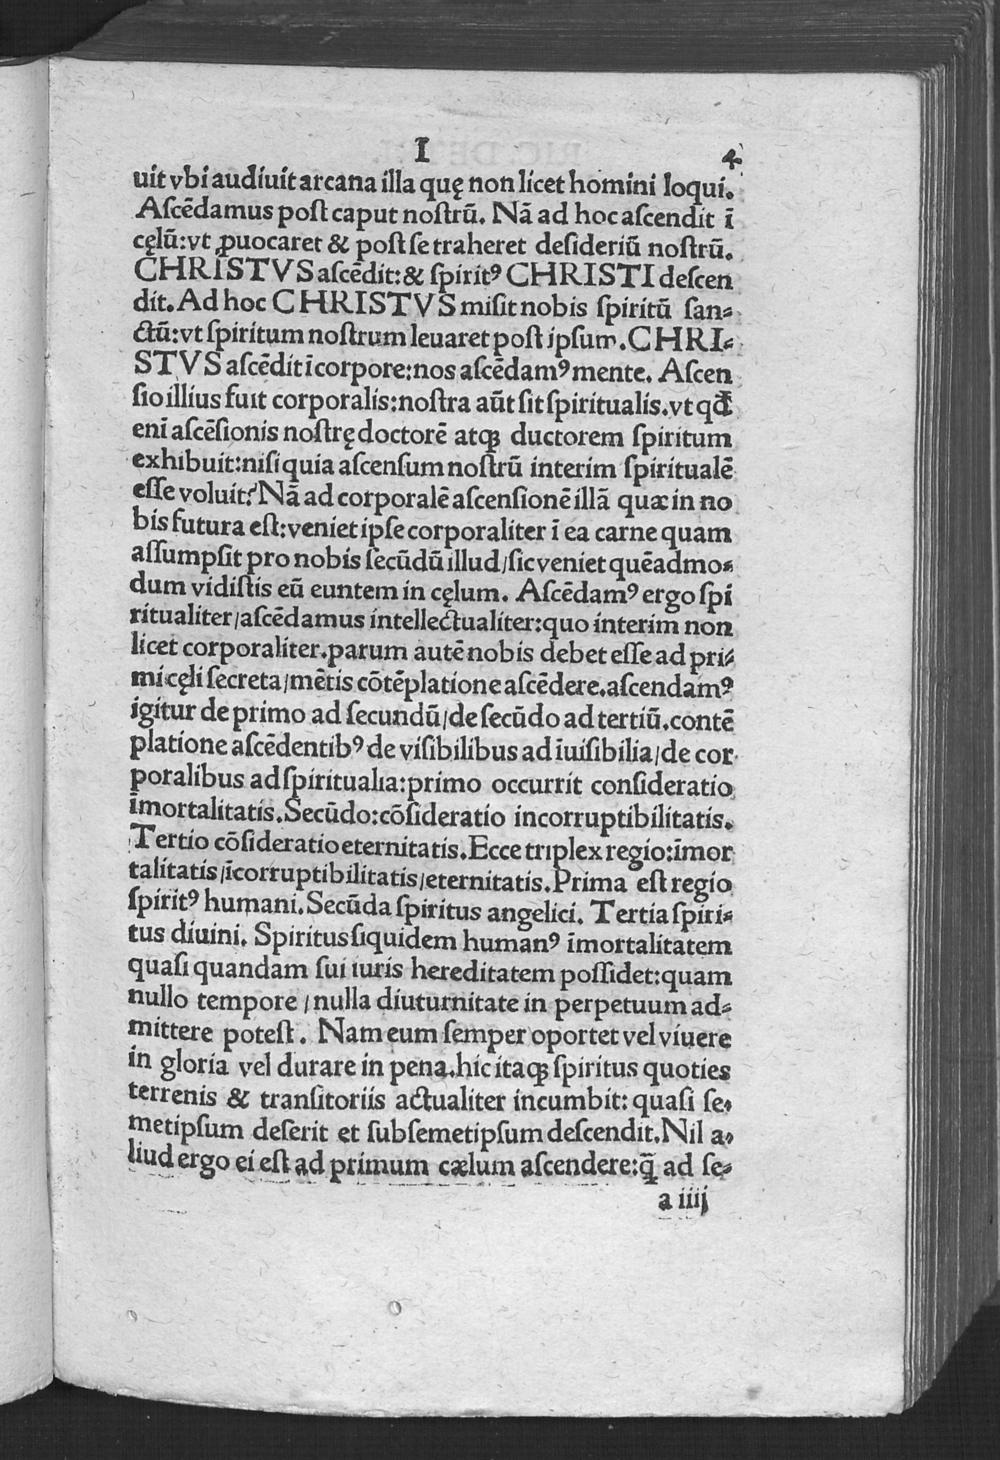 I 4
uit vbi audiuit arcana illa quę non licet homini loqui.
Aſcēdamus poſt caput noſtrū. Nā ad hoc aſcendit ī
cęlū: vt ꝓuocaret & poſt ſe traheret deſideriū noſtrū.
CHRISTVS aſcēdit: & ſpiritꝰ CHRISTI deſcen
dit. Ad hoc CHRISTVS miſit nobis ſpiritū ſan⸗
ctū: vt ſpiritum noſtrum leuaret poſt ipſum. CHRI⸗
STVS aſcēdit ī corpore: nos aſcēdamꝰ mente. Aſcen
ſio illius fuit corporalis: noſtra aūt ſit ſpiritualis. vt qđ
enī aſcēſionis noſtrę doctorē atqꝫ ductorem ſpiritum
exhibuit: niſi quia aſcenſum noſtrū interim ſpiritualē
eſſe voluit? Nā ad corporalē aſcenſionē illā quæ in no
bis futura eſt: veniet ipſe corporaliter ī ea carne quam
aſſumpſit pro nobis ſecūdū illud/ ſic veniet quēadmo⸗
dum vidiſtis eū euntem in cęlum. Aſcēdamꝰ ergo ſpi
ritualiter/ aſcēdamus intellectualiter: quo interim non
licet corporaliter. parum autē nobis debet eſſe ad pri⸗
mi cęli ſecreta/ mētis cōtēplatione aſcēdere. aſcendamꝰ
igitur de primo ad ſecundū/ de ſecūdo ad tertiū. contē
platione aſcēdentibꝰ de viſibilibus ad īuiſibilia/ de cor
poralibus ad ſpiritualia: primo occurrit conſideratio
īmortalitatis. Secūdo: cōſideratio incorruptibilitatis.
Tertio cōſideratio eternitatis. Ecce triplex regio: īmor
talitatis/ īcorruptibilitatis/ eternitatis. Prima eſt regio
ſpiritꝰ humani. Secūda ſpiritus angelici. Tertia ſpiri⸗
tus diuini. Spiritus ſiquidem humanꝰ īmortalitatem
quaſi quandam ſui iuris hereditatem poſſidet: quam
nullo tempore / nulla diuturnitate in perpetuum ad⸗
mittere poteſt. Nam eum ſemper oportet vel viuere
in gloria vel durare in pena. hic itaqꝫ ſpiritus quoties
terrenis & tranſitoriis actualiter incumbit: quaſi ſe⸗
metipſum deſerit et ſubſemetipſum deſcendit. Nil a⸗
liud ergo ei eſt ad primum cælum aſcendere: q̄ꝫ ad ſe⸗
a iiij